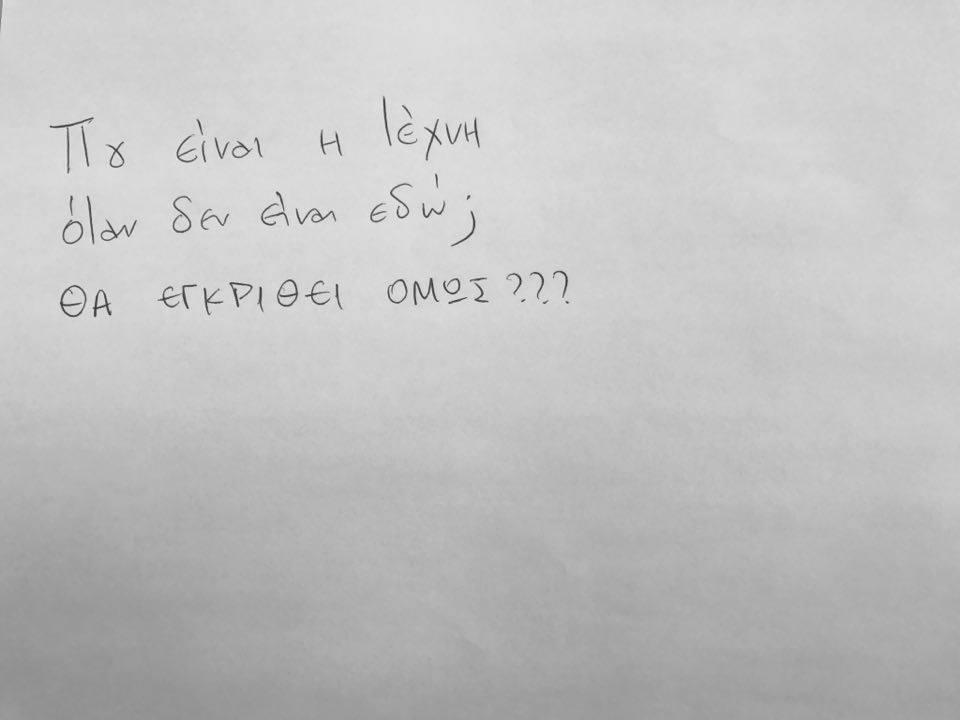 Που είναι η τέχνη
όταν δεν είναι εδώ;
ΘΑ ΕΓΚΡΙΘΕΙ ΟΜΩΣ???